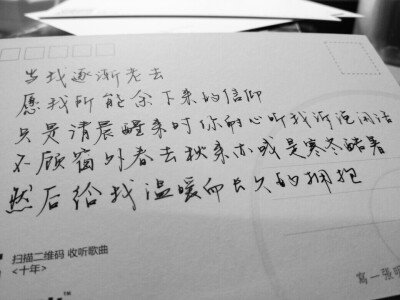 当我逐渐老去
愿我所能余下来的信仰
只是清晨醒来时你耐心听我诉说闲话
不顾窗外春去秋来亦或是寒冬酷暑
然后给我温暖而长久的拥抱
扫描二维码 收听歌曲
<十年>
寫一張明